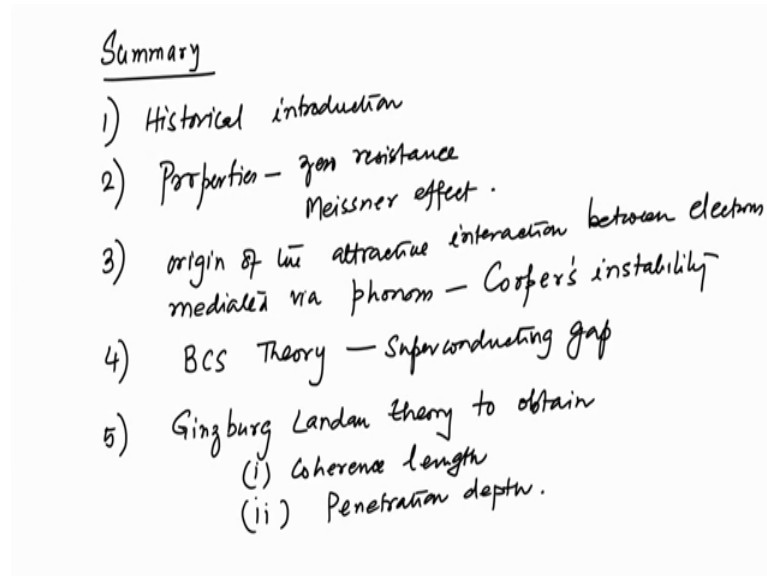 Summary
1) Historical introduction
2) Properties - zero resistance
Meissner effect.
3) origin of the attractive interaction between electrons
mediated via phonons - Cooper's instability
4) BCS Theory - Superconducting gap
5) Ginzburg Landau theory to obtain
(i) Coherence length
(ii) Penetration depth.